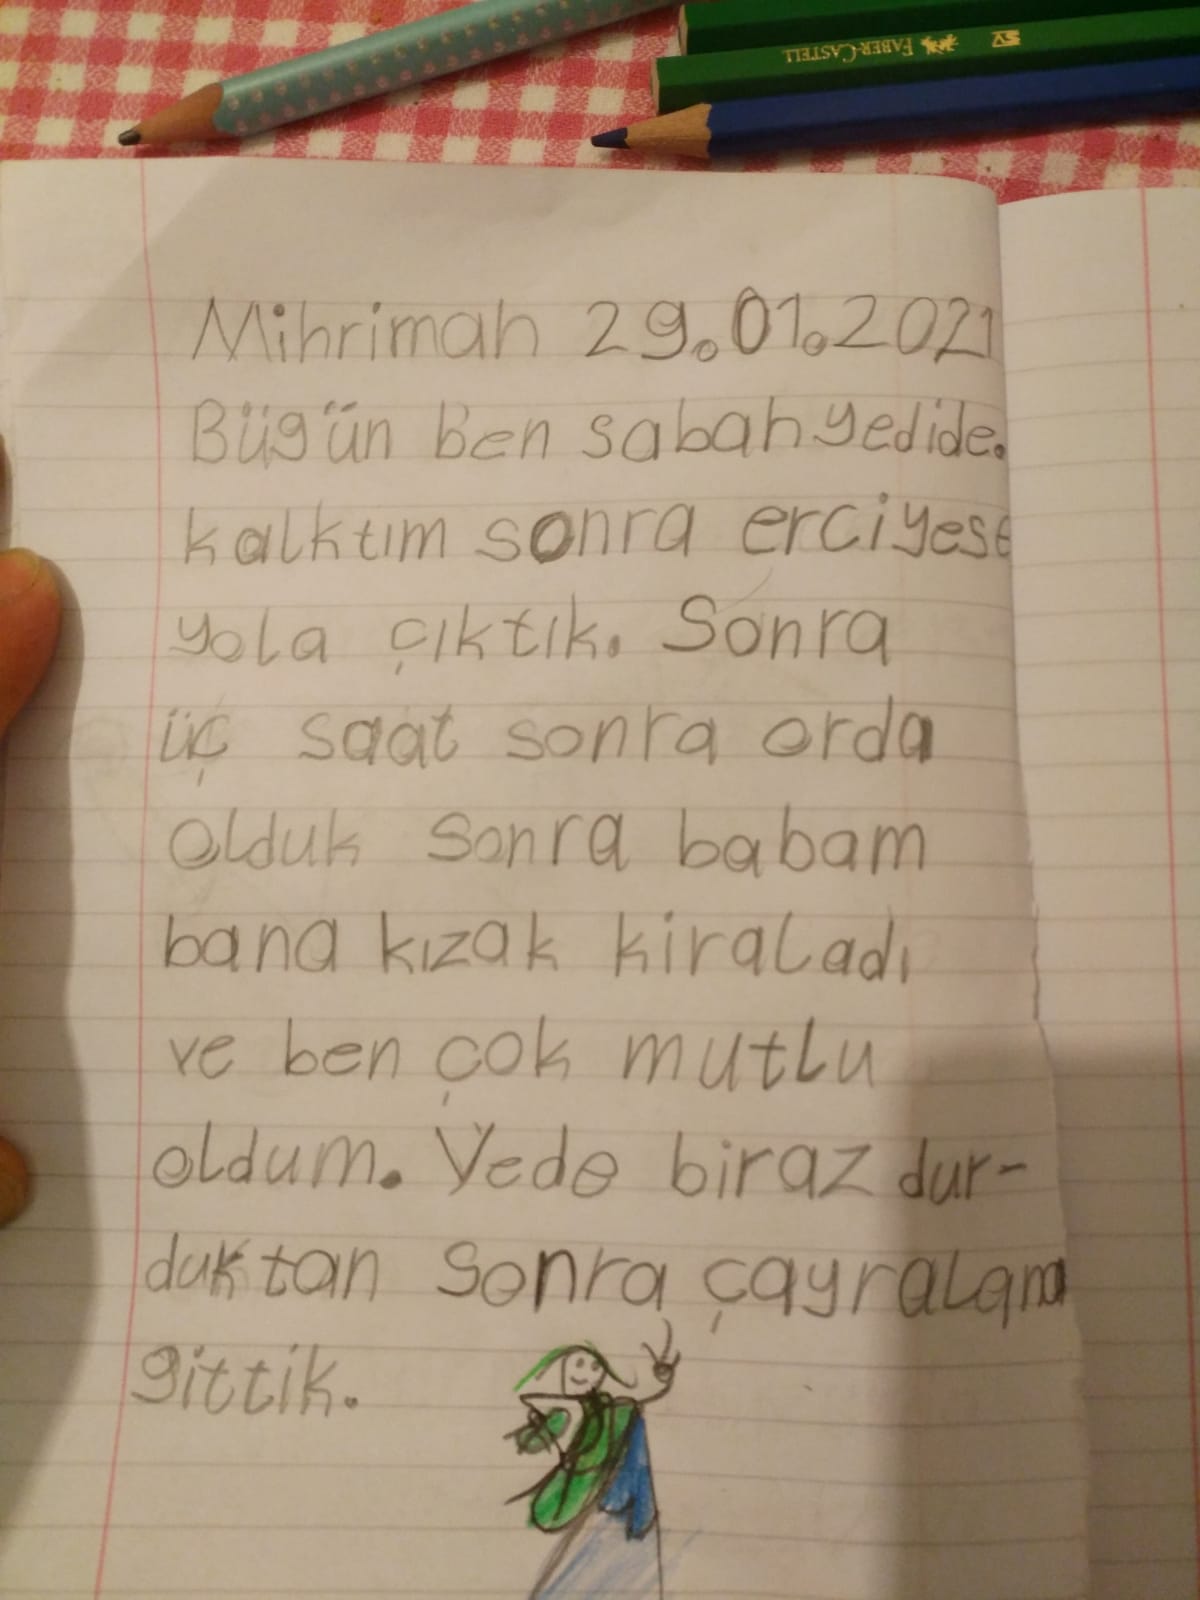 FABER-CASTELL SV
Mihrimah 29.01.2021
Bügün ben sabah yedide.
kalktım sonra erciyese
yola çıktık. Sonra
üç saat sonra orda
olduk sonra babam
bana kızak kiraladı
ve ben çok mutlu
oldum. Vede biraz dur-
duktan sonra çayralana
gittik.